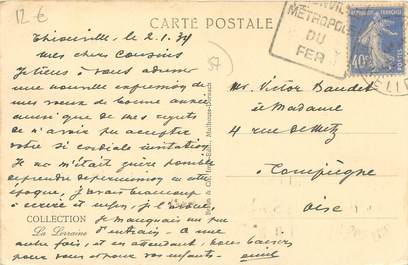 12 €
CARTE POSTALE
Thionville, le 2.1.39
Mes chers Cousins
Je tiens à vous adresser
une nouvelle expression de
mes vœux de bonne année
ainsi que de mes regrets
de n'avoir pu accepter
votre si cordiale invitation.
Je ne m'était guère possible
de prendre de permission en cette
époque, j'avais beaucoup
à écrire et enfin, je l'avoue
je manquais un peu
d'entrain. A une
autre fois, et en attendant, nous baisers
pour vous et pour vos enfants.
COLLECTION
La Lorraine
57
Mulhouse-Dornach
METROPOLE
DU
FER
40c
POSTES
Mr Victor Baudet
et Madame
4 rue de Metz
Compiègne
Oise